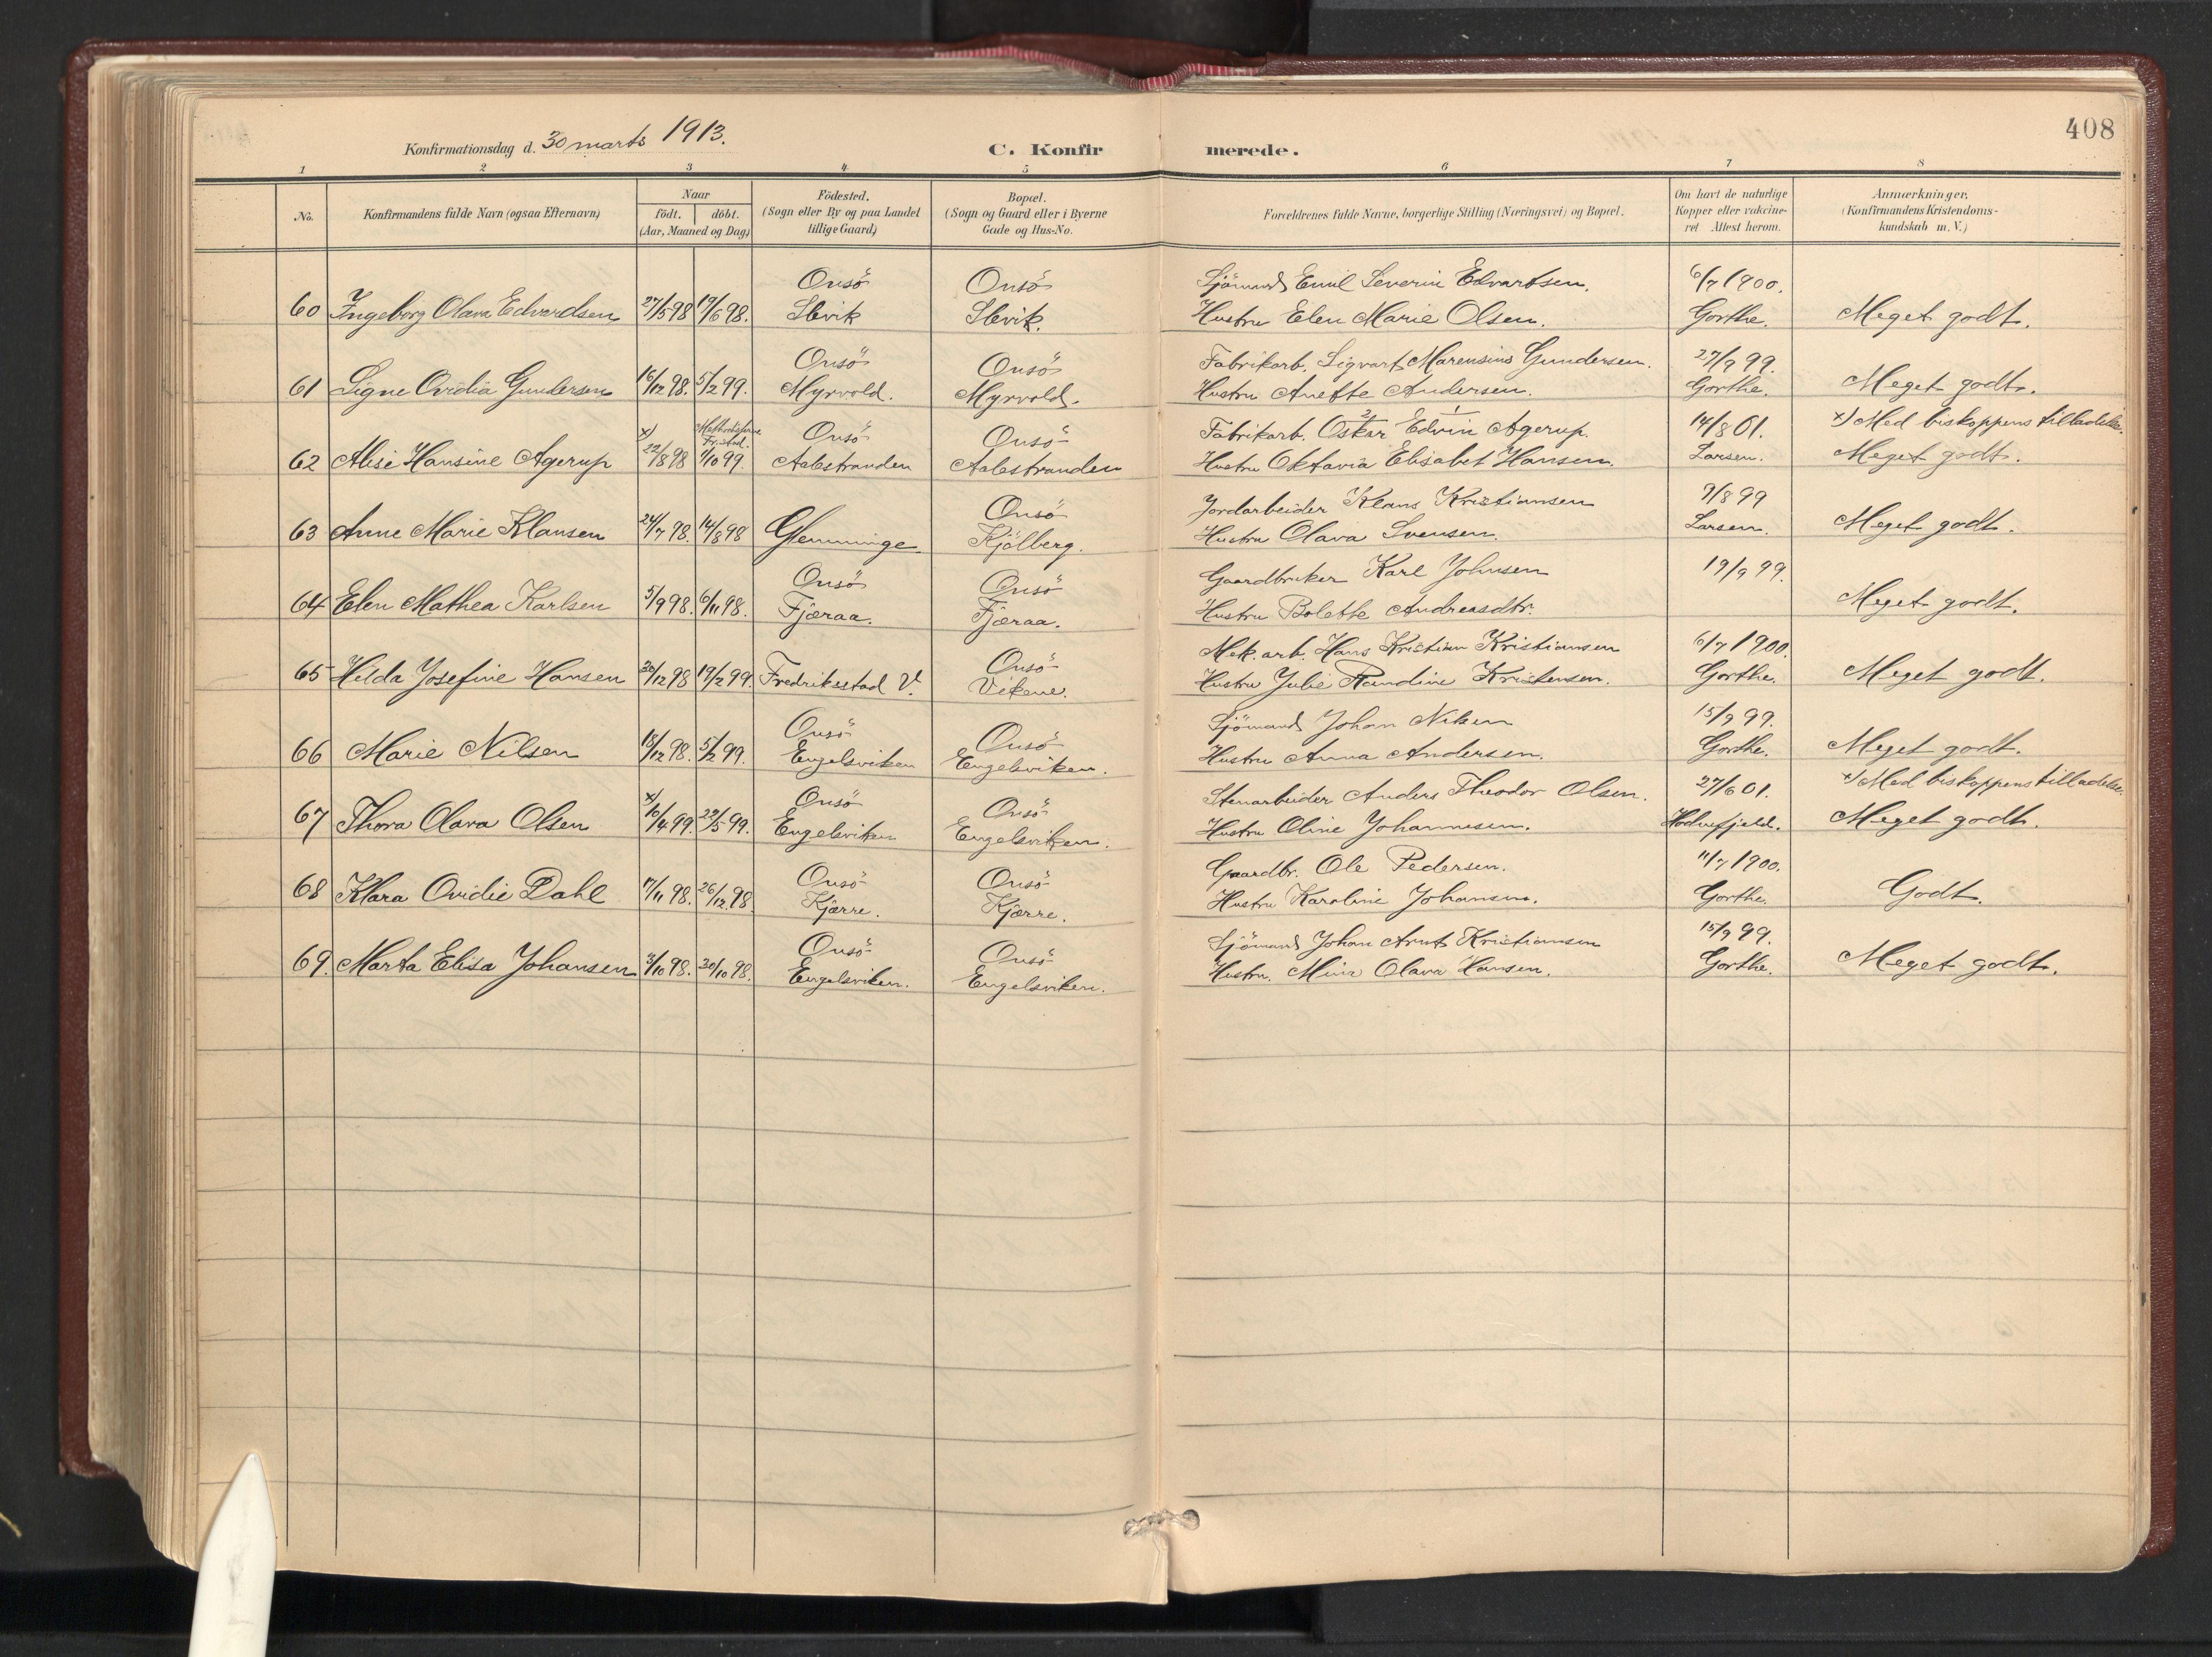 408
Konfirmationsdag d. 30 marts 1913.
C. Konfirmerede.
1 2 3 4 5 6 7 8
No.
Konfirmandens fulde Navn (ogsaa Efternavn)
Naar
födt. döbt.
(Aar, Maaned og Dag)
Födested.
(Sogn eller By og paa Landet
tillige Gaard)
Bopæl.
(Sogn og Gaard eller i Byerne
Gade og Hus-No.
Forældrenes fulde Navne, borgerlige Stilling (Næringsvei) og Bopæl.
Om havt de naturlige
Kopper eller vakcine-
ret Attest herom.
Anmærkninger.
(Konfirmandens Kristendoms-
kundskab m. V.)
Onsö Onsö Sjömand Emil Severin Edvartsen. 6/7 1900.
60 Ingeborg Olava Edvardsen 27/5 98 19/6 98. Slevik Slevik. Hustru Elen Marie Olsen. Gorthe. Meget godt.
Onsö Onsö Fabrikarb. Sigvart Marensius Gundersen. 27/9 99.
61 Signe Ovidia Gundersen 16/12 98. 5/2 99. Myrvold. Myrvold. Hustru Anette Andersen. Gorthe. Meget godt.
x) Methodisterne Fr.stad. Onsö Onsö Fabrikarb. Oskar 2 Edvin 1 Agerup. 14/8 01. x) Med biskoppens tilladelse.
62 Alise Hansine Agerup 22/8 98 1/10 99. Aalestranden Aalestranden Hustru Oktavia Elisabet Hansen. Larsen. Meget godt.
Onsö Jordarbeider Klaus Kristiansen 9/8 99
63 Anne Marie Klausen 24/7 98. 14/8 98 Glemminge Kjölberg. Hustru Olava Svensen. Larsen. Meget godt.
Onsö Onsö Gaardbruker Karl Johnsen 19/9 99.
64 Elen Mathea Karlsen 5/9 98. 6/11 98. Fjæraa. Fjæraa. Hustru Bolette Andreasdtr. Meget godt.
Onsö Mek. arb. Hans Kristian Kristiansen 6/7 1900.
65 Hilda Josefine Hansen 30/12 98 19/2 99. Fredriksstad V. Vikene. Hustru Julie Randine Kristensen. Gorthe. Meget godt.
Onsö Onsö Sjömand Johan Nilsen 15/9 99.
66 Marie Nilsen 18/12 98. 5/2 99. Engelsviken Engelsviken. Hustru Anna Andersen. Gorthe. Meget godt.
x) Onsö Onsö Stenarbeider Anders Theodor Olsen. 27/6 01. x) Med biskoppens tilladelse.
67 Thora Olava Olsen 10/4 99. 22/5 99. Engelsviken Engelsviken. Hustru Oline Johannesen. Hodnefjeld. Meget godt.
Onsö Onsö Gaardbr. Ole Pedersen. 11/7 1900.
68 Klara Ovidie Dahl 17/11 98. 26/12 98 Kjærre. Kjærre. Hustru Karoline Johansen. Gorthe. Godt.
Onsö Onsö Sjömand Johan Arnt Kristiansen 15/9 99.
69. Marta Elisa Johansen 3/10 98. 30/10 98. Engelsviken. Engelsviken. Hustru. Mina Olava Hansen. Gorthe. Meget godt.